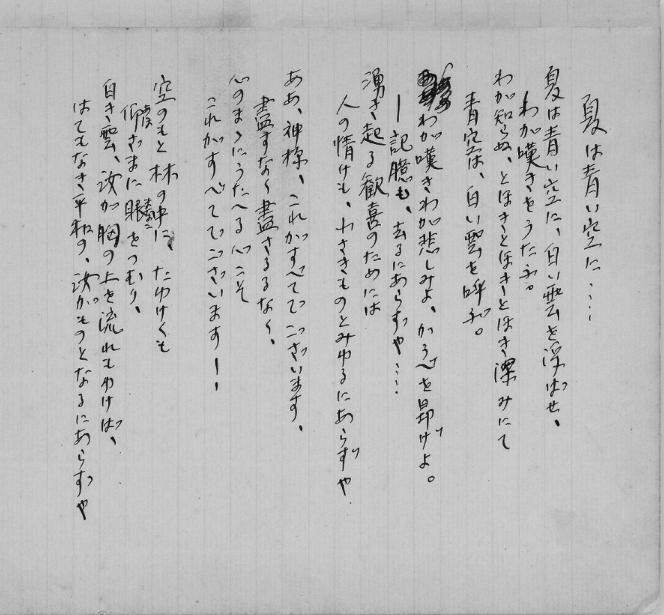 夏は青い空に‥‥
夏は青い空に、白い雲を浮ばせ、
わが嘆きをうたふ。
わが知らぬ、とほきとほきとほき深みにて
青空は、白い雲を呼ぶ。
わが嘆きわが悲しみよ、かうべを昂げよ。
―記臆も、去るにあらずや‥‥
湧き起る歓喜のためには
人の情けも、小さきものとみゆるにあらずや
ああ、神様、これがすべてでございます、
盡すなく盡さるるなく、
心のまゝにうたへる心こそ
これがすべてでございます!
空のもと林の中に、たゆけくも
仰ざまに眼をつむり、
白き雲、汝が胸の上を流れもゆけば、
はてもなき平和の、汝がものとなるにあらずや